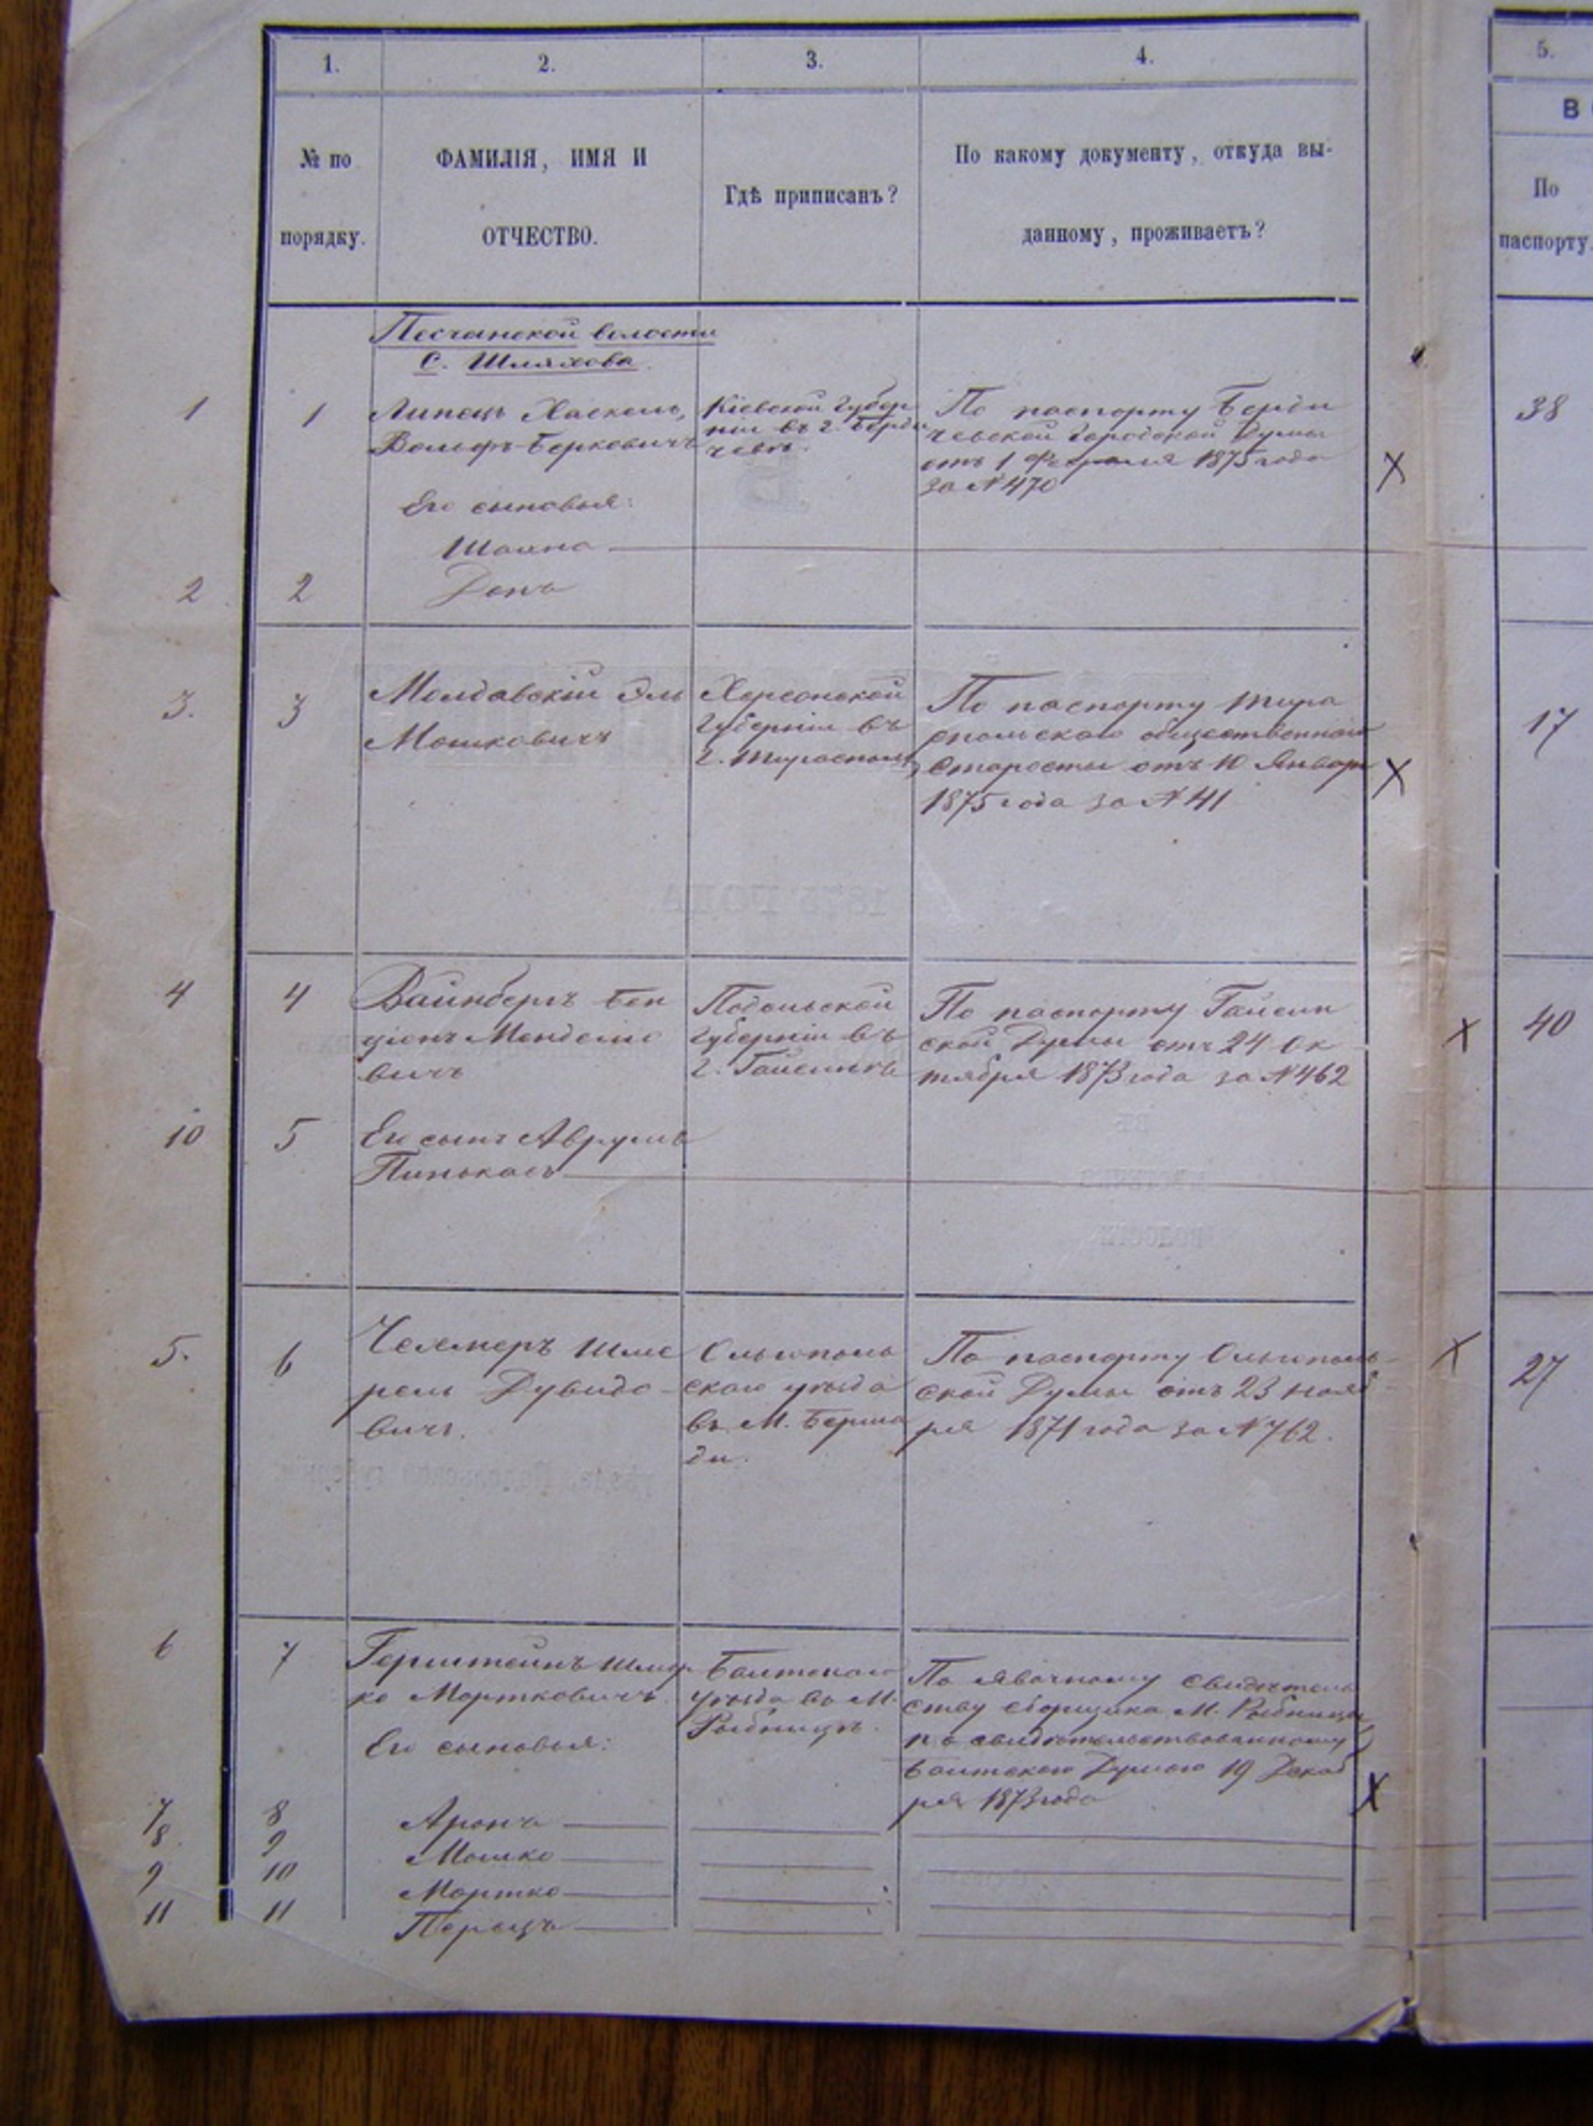 1.
2.
3.
4.
5.
№ по
порядку.
ФАМИЛІЯ, ИМЯ И
ОТЧЕСТВО.
Гдѣ приписанъ?
По какому документу, откуда вы-
данному, проживаетъ?
В
По
паспорту
Песчанской волости
С. Шляхова
1 1
Липецъ Хаскель,
Вольфъ-Берковичъ
Кіевской губер
ніи въ г. Берди
чевѣ.
По паспорту Берди
чевской городской Думы
отъ 1 Февраля 1875 года
за № 470
38
Его сыновья:
Шаяна
2 2
3. 3
Молдавскій Эль
Мошковичъ
Херсонской
губерніи въ
г. Тирасполѣ
По паспорту Тира
спольскаго общественнаго
старосты отъ 10 Января
1875 года за № 41
17
4 4
Вайнбергъ Бен
ціонъ Менделіо
вичъ
Подольской
губерніи въ
г. Гайсинѣ
По паспорту Гайсин
ской Думы отъ 24 Ок
тября 1873 года за № 462
40
10 5
Его сынъ Аврумъ
Пинькасъ
5. 6
Шме
рель Дувидо-
вичъ.
Ольгополь
скаго уѣзда
въ М. Берша
ди.
По паспорту Ольгополь-
ской Думы отъ 23 Нояб
ря 1871 года за № 762.
27
6 7
Герштейнъ Шмер
ко Мортковичъ.
Балтскаго
уѣзда въ М.
Рыбницѣ.
По явочному свидѣтель
ству сборщика М. Рыбницы,
свидѣтельствованному
Балтскою Думою 19 Декаб
ря 1873 года
Его сыновья:
7 8 Аронъ
8. 9 Мошко
9 10 Мортко
11 11 Перецъ